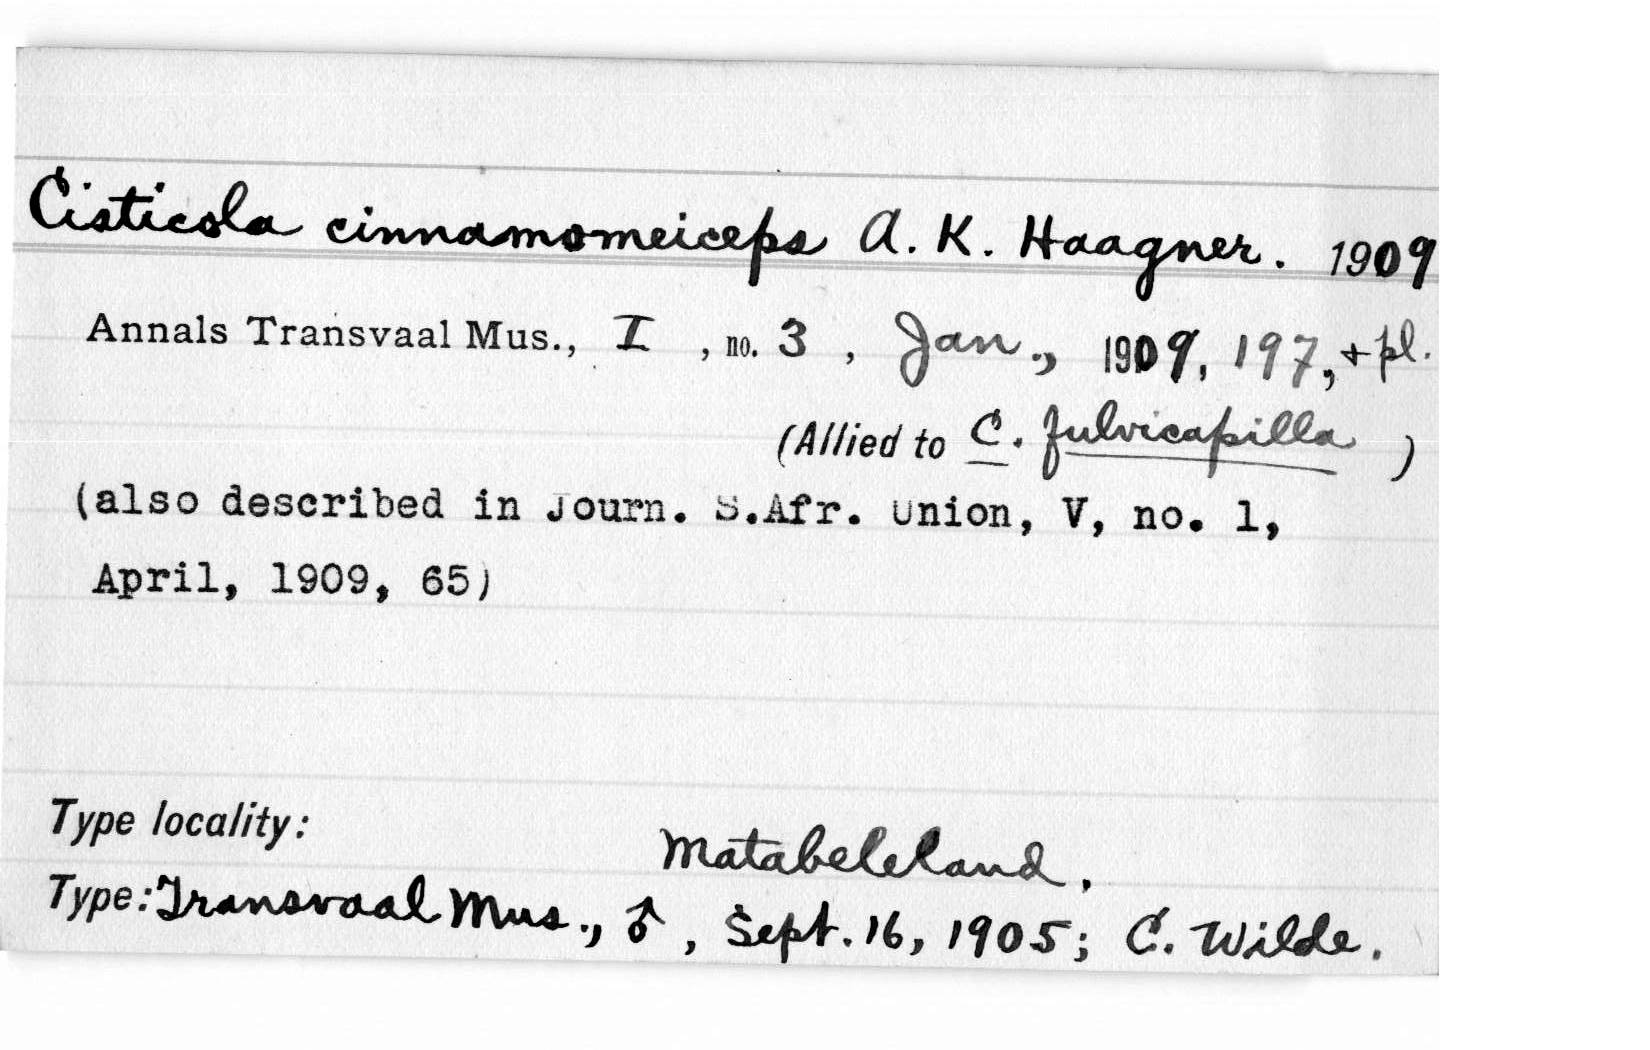 Cisticola cinnamomeiceps A. K. Haagner. 1909
Annals Transvaal Mus., I , no. 3 , Jan., 1909, 197, + pl.
(Allied to C. fulvicapilla )
(also described in Journ. S.Afr. Union, V, no. 1,
April, 1909, 65)
Type locality:
Matabeleland.
Type: Transvaal Mus., ♂, Sept. 16, 1905; C. Wilde.